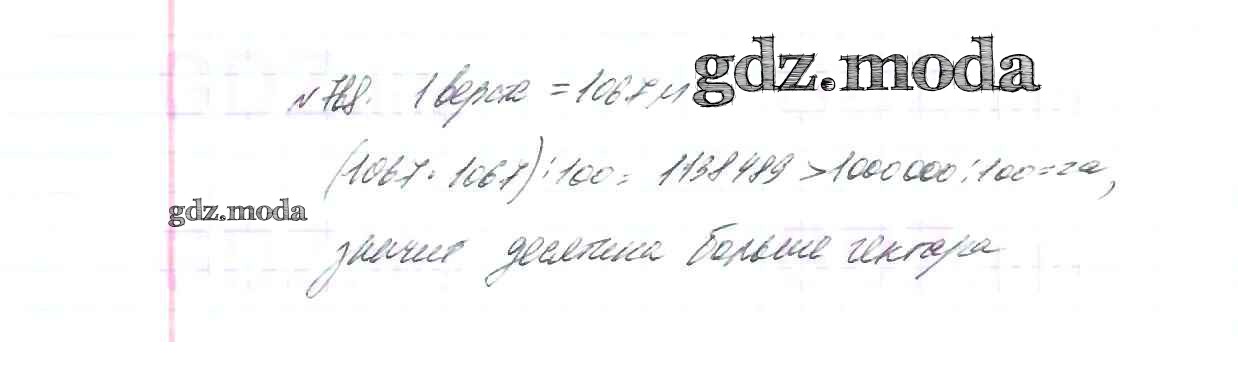 №788. 1 верста = 1067 м gdz.moda
(1067 · 1067) : 100 = 1138489 > 1000000 : 100 = га,
gdz.moda
значит десятина больше гектара